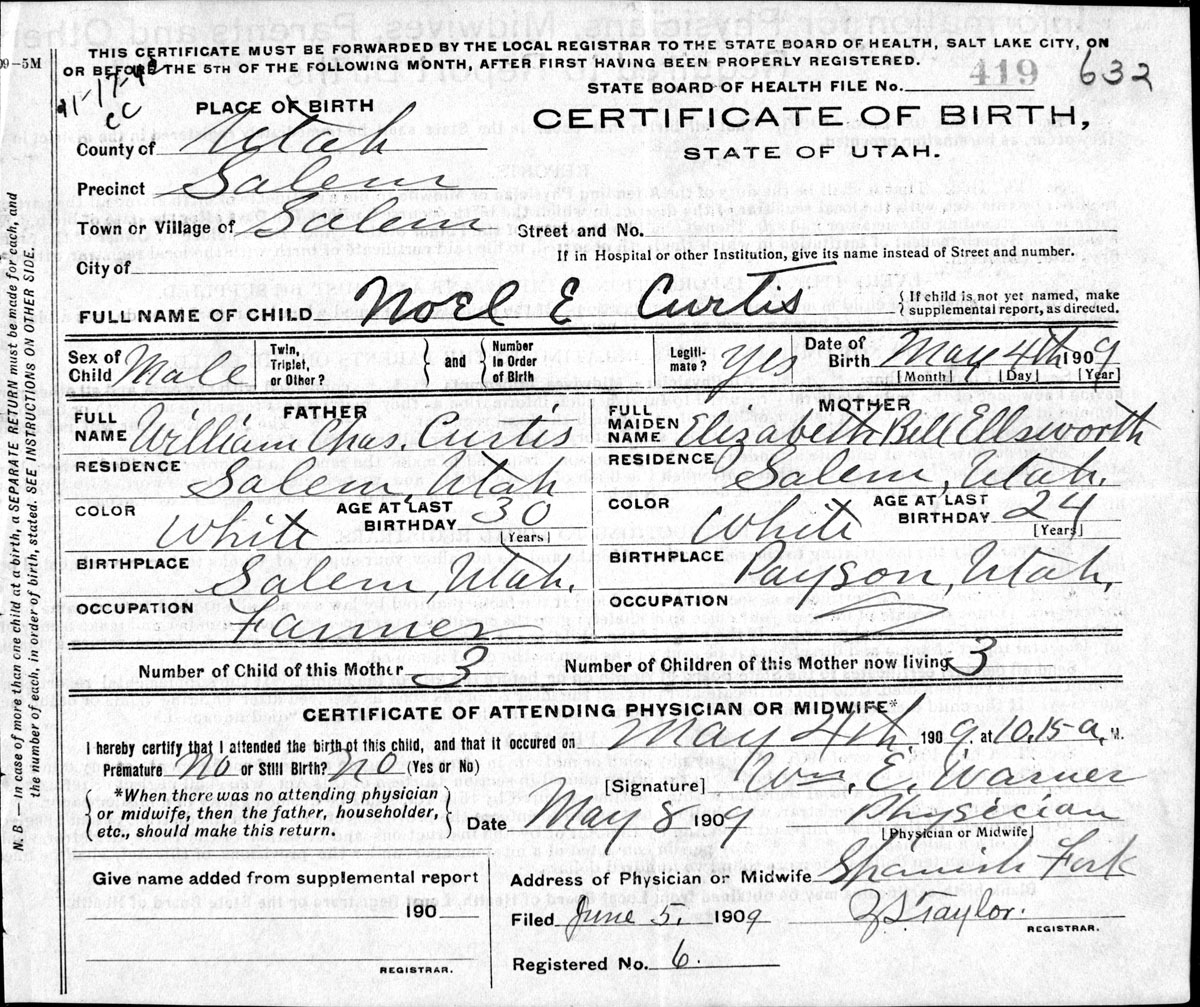 THIS CERTIFICATE MUST BE FORWARDED BY THE LOCAL REGISTRAR TO THE STATE BOARD OF HEALTH, SALT LAKE CITY, ON
09—5M OR BEFORE THE 5TH OF THE FOLLOWING MONTH, AFTER FIRST HAVING BEEN PROPERLY REGISTERED.
STATE BOARD OF HEALTH FILE No. 419 632
PLACE OF BIRTH
CERTIFICATE OF BIRTH,
STATE OF UTAH.
County of Utah
Precinct Salem
Town or Village of Salem Street and No.
City of If in Hospital or other Institution, give its name instead of Street and number.
FULL NAME OF CHILD Noel E Curtis { If child is not yet named, make supplemental report, as directed.
Sex of Child Male Twin, Triplet, or Other? } and { Number in Order of Birth Legiti-mate? Yes Date of Birth May 4th 1909
[Month] [Day] [Year]
FATHER MOTHER
FULL NAME William Chas. Curtis FULL MAIDEN NAME Elizabeth Bell Ellsworth
RESIDENCE Salem, Utah RESIDENCE Salem, Utah.
COLOR White AGE AT LAST BIRTHDAY 30 [Years] COLOR White AGE AT LAST BIRTHDAY 24 [Years]
BIRTHPLACE Salem, Utah. BIRTHPLACE Payson, Utah.
OCCUPATION Farmer OCCUPATION
Number of Child of this Mother 3 Number of Children of this Mother now living 3
CERTIFICATE OF ATTENDING PHYSICIAN OR MIDWIFE*
I hereby certify that I attended the birth of this child, and that it occured on May 4th, 1909, at 10.15 a. M.
Premature No or Still Birth? No (Yes or No)
[Signature] Wm. E. Warner
{ *When there was no attending physician or midwife, then the father, householder, etc., should make this return. }
Date May 8 1909 Physician
[Physician or Midwife]
Give name added from supplemental report
190
REGISTRAR.
Address of Physician or Midwife Spanish Fork
Filed June 5, 1909 Taylor.
REGISTRAR.
Registered No. 6.
N. B.—In case of more than one child at a birth, a SEPARATE RETURN must be made for each, and
the number of each, in order of birth, stated. SEE INSTRUCTIONS ON OTHER SIDE.